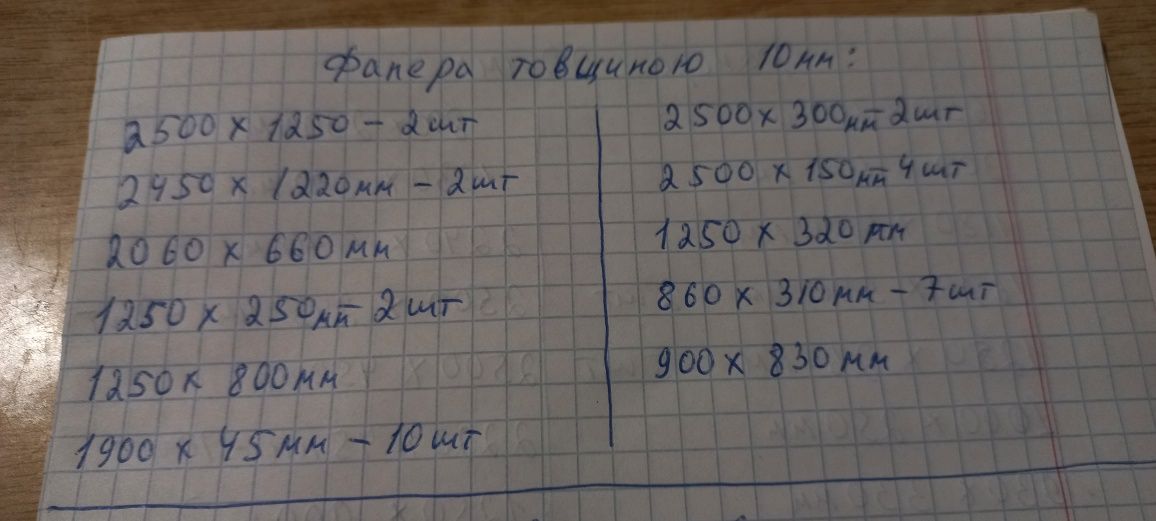 Фанера товщиною 10мм:
2500 х 1250 – 2шт
2450 х 1220мм – 2шт
2060 х 660мм
1250 х 250мм – 2шт
1250 х 800мм
1900 х 45мм – 10шт
2500 х 300мм – 2шт
2500 х 150мм – 4шт
1250 х 320мм
860 х 310мм – 7шт
900 х 830мм